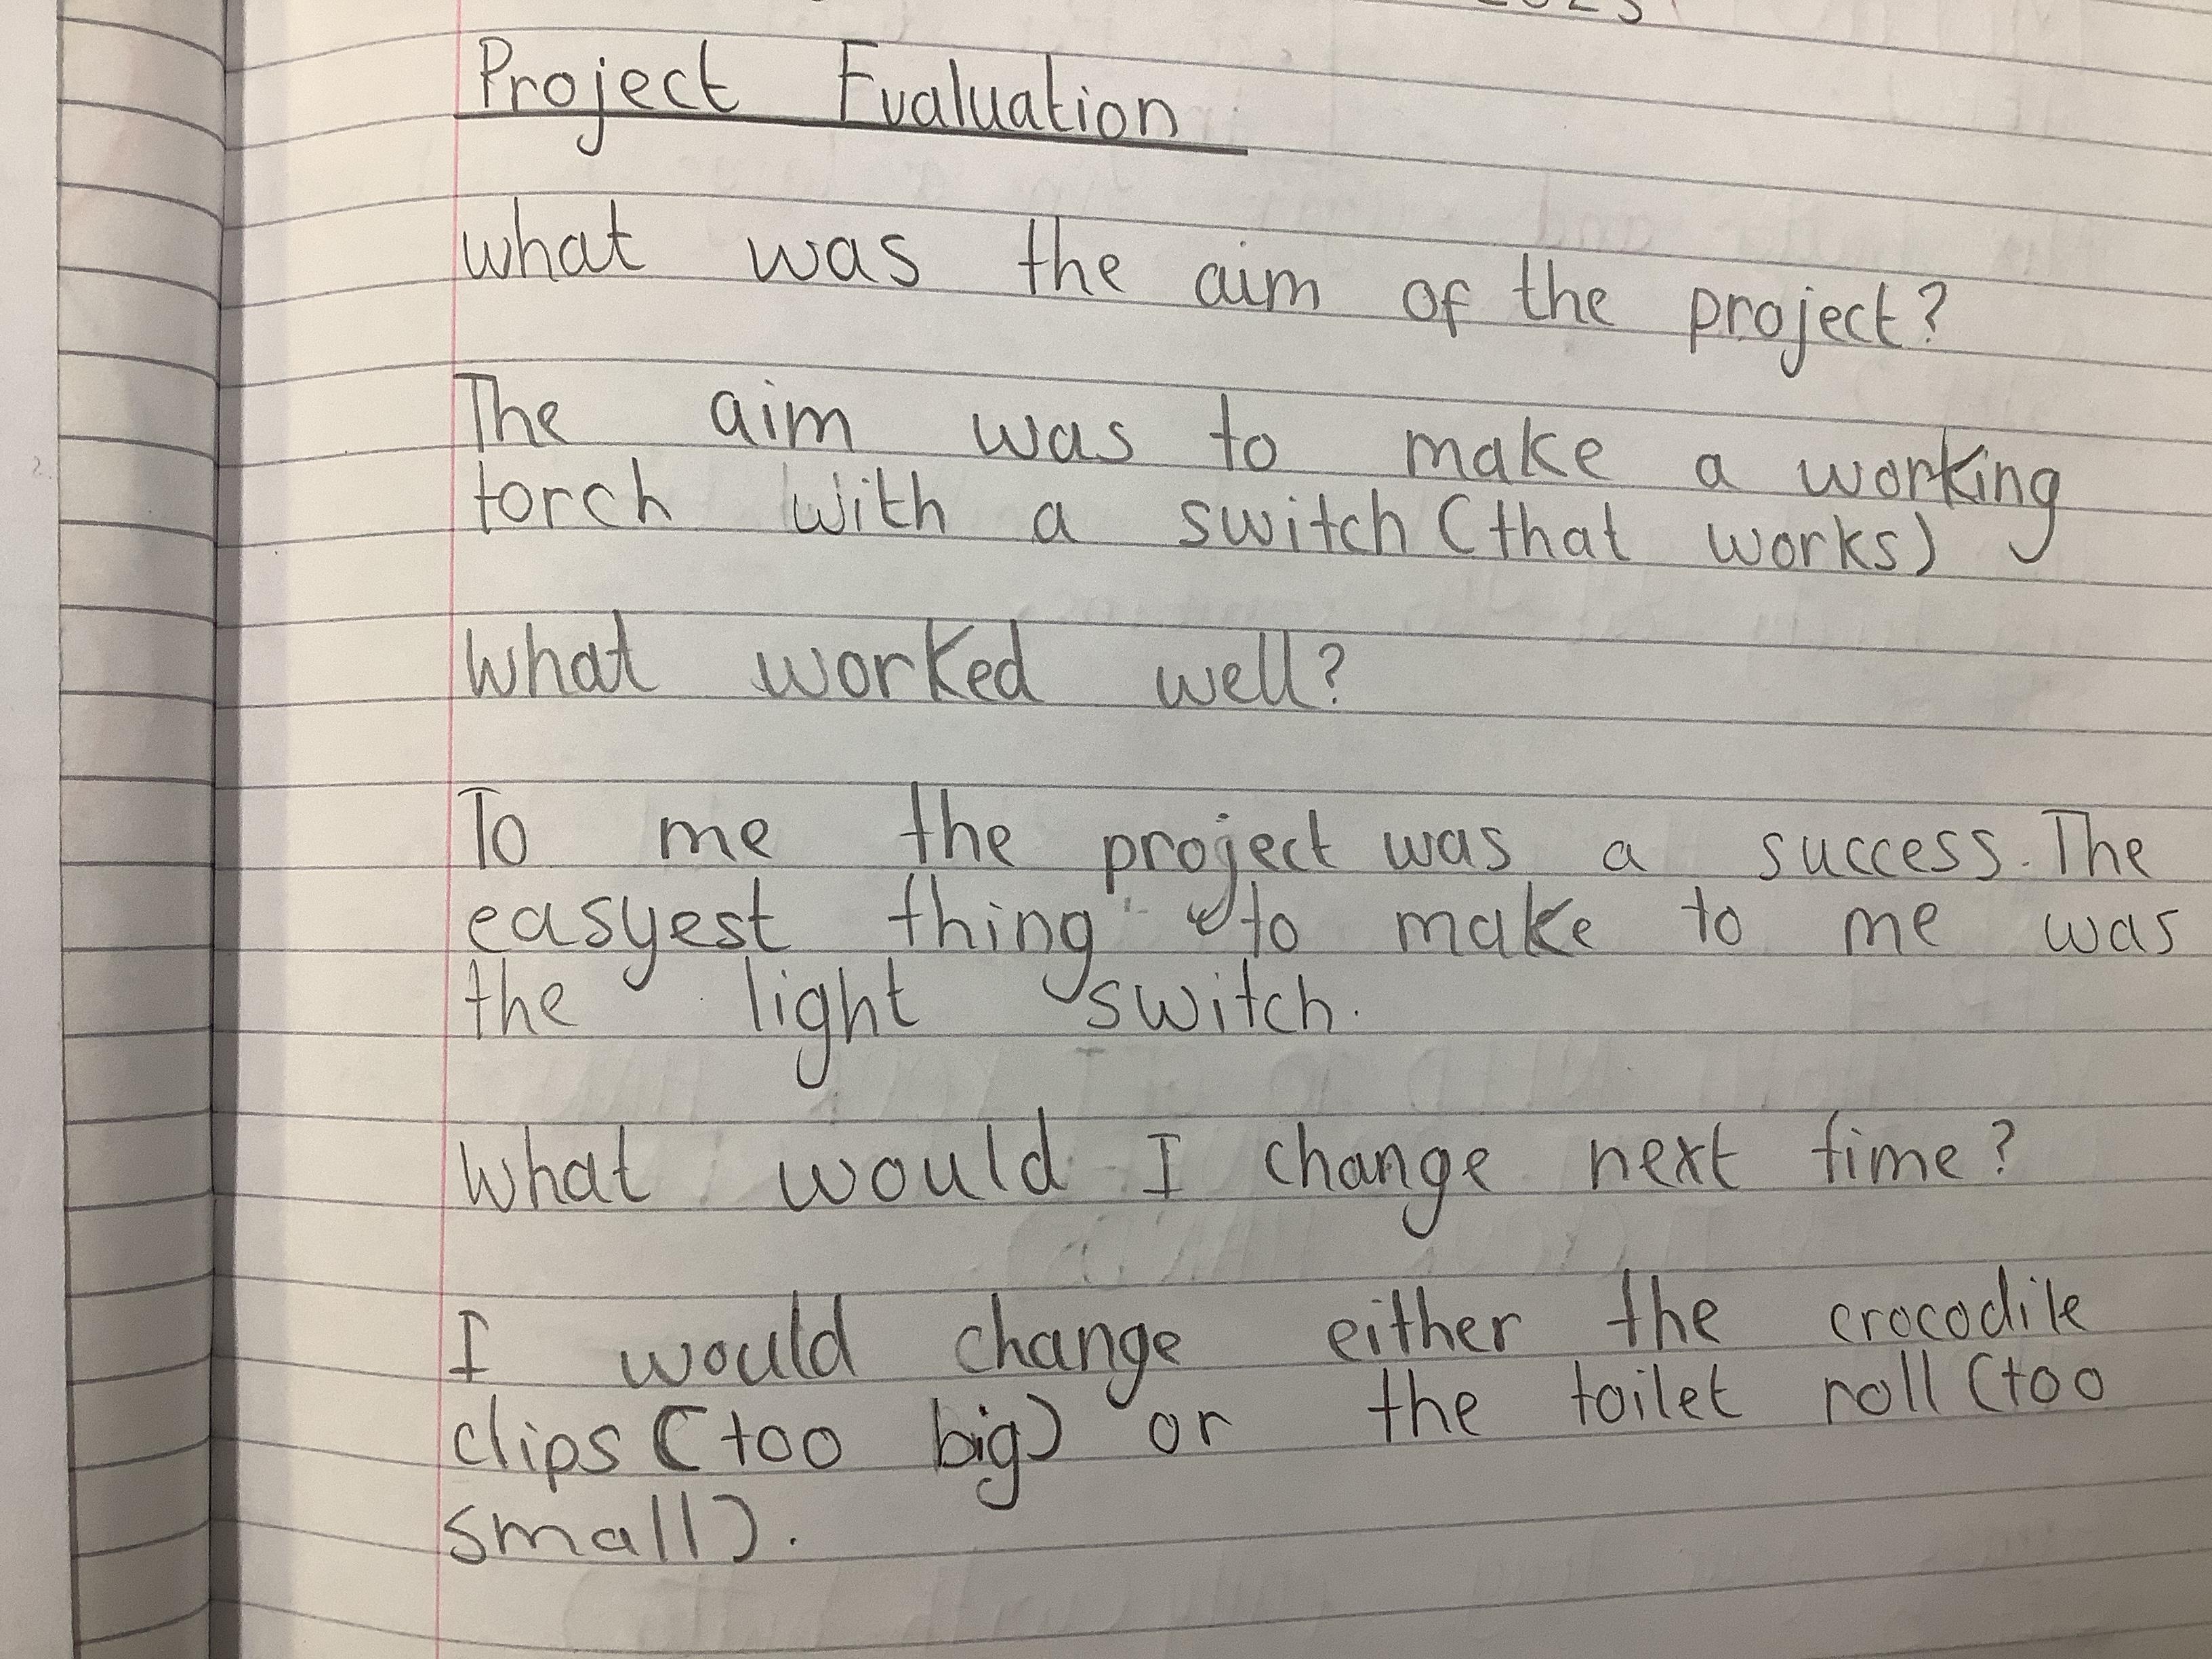 Project Evaluation
what was the aim of the project?
The aim was to make a working
torch with a switch (that works)
What worked well?
To me the project was a success. The
easyest thing to make to me was
the light switch.
What would I change next time?
I would change either the crocodile
clips (too big) or the toilet roll (too
small).